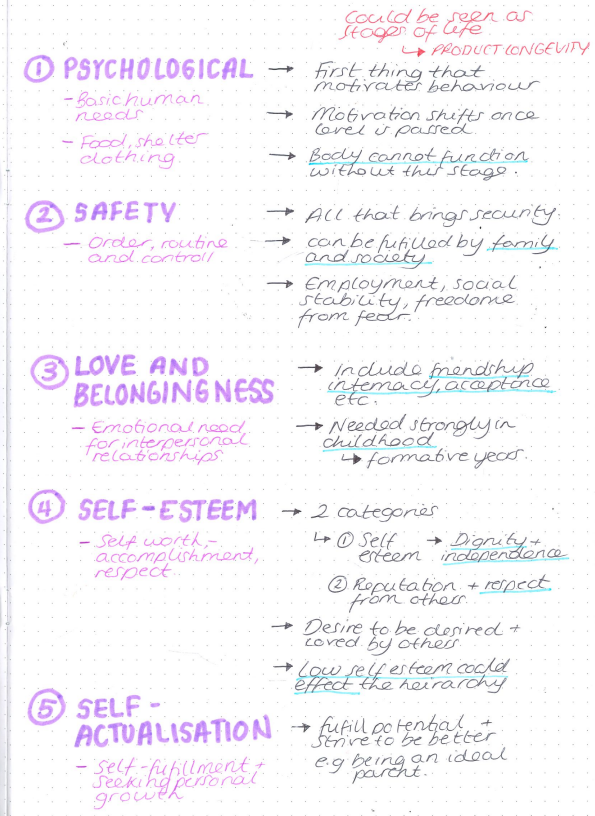 could be seen as
stages of life
↳ PRODUCT LONGEVITY
① PSYCHOLOGICAL
- Basic human
needs
- Food, shelter
clothing
→ First thing that
motivates behaviour
→ Motivation shifts once
level is passed
→ Body cannot function
without this stage.
② SAFETY
- Order, routine
and controll
→ All that brings security.
→ can be fufilled by family
and society
→ Employment, social
stability, freedome
from fear.
③ LOVE AND
BELONGINGNESS
- Emotional need
for interpersonal
relationships
→ Include friendship
internacy, acceptance
etc.
→ Needed strongly in
childhood
↳ formative years.
④ SELF-ESTEEM
- Self worth,-
accomplishment,
respect.
→ 2 categories
↳ ① Self → Dignity +
esteem independence
② Reputation + respect
from others.
→ Desire to be desired +
loved by others.
→ Low self esteem could
effect the heirarchy
⑤ SELF-
ACTUALISATION
- Self-fufillment +
seeking personal
growth
→ fufill potential +
strive to be better
e.g being an ideal
parent.